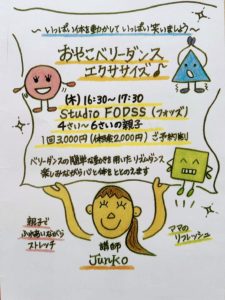 ～いっぱい体を動かしていっぱい笑いましょう～
おやこベリーダンス
エクササイズ♪
(木) 16:30～17:30
Studio FODSS (フォッズ)
4さい～6さいの親子
1回3,000円(体験2,000円) ご予約制
ベリーダンスの簡単な動きを用いたリズムダンス
楽しみながら心と体をととのえます
親子で
ふれあいながら
ストレッチ
ママの
リフレッシュ
講師
Junko